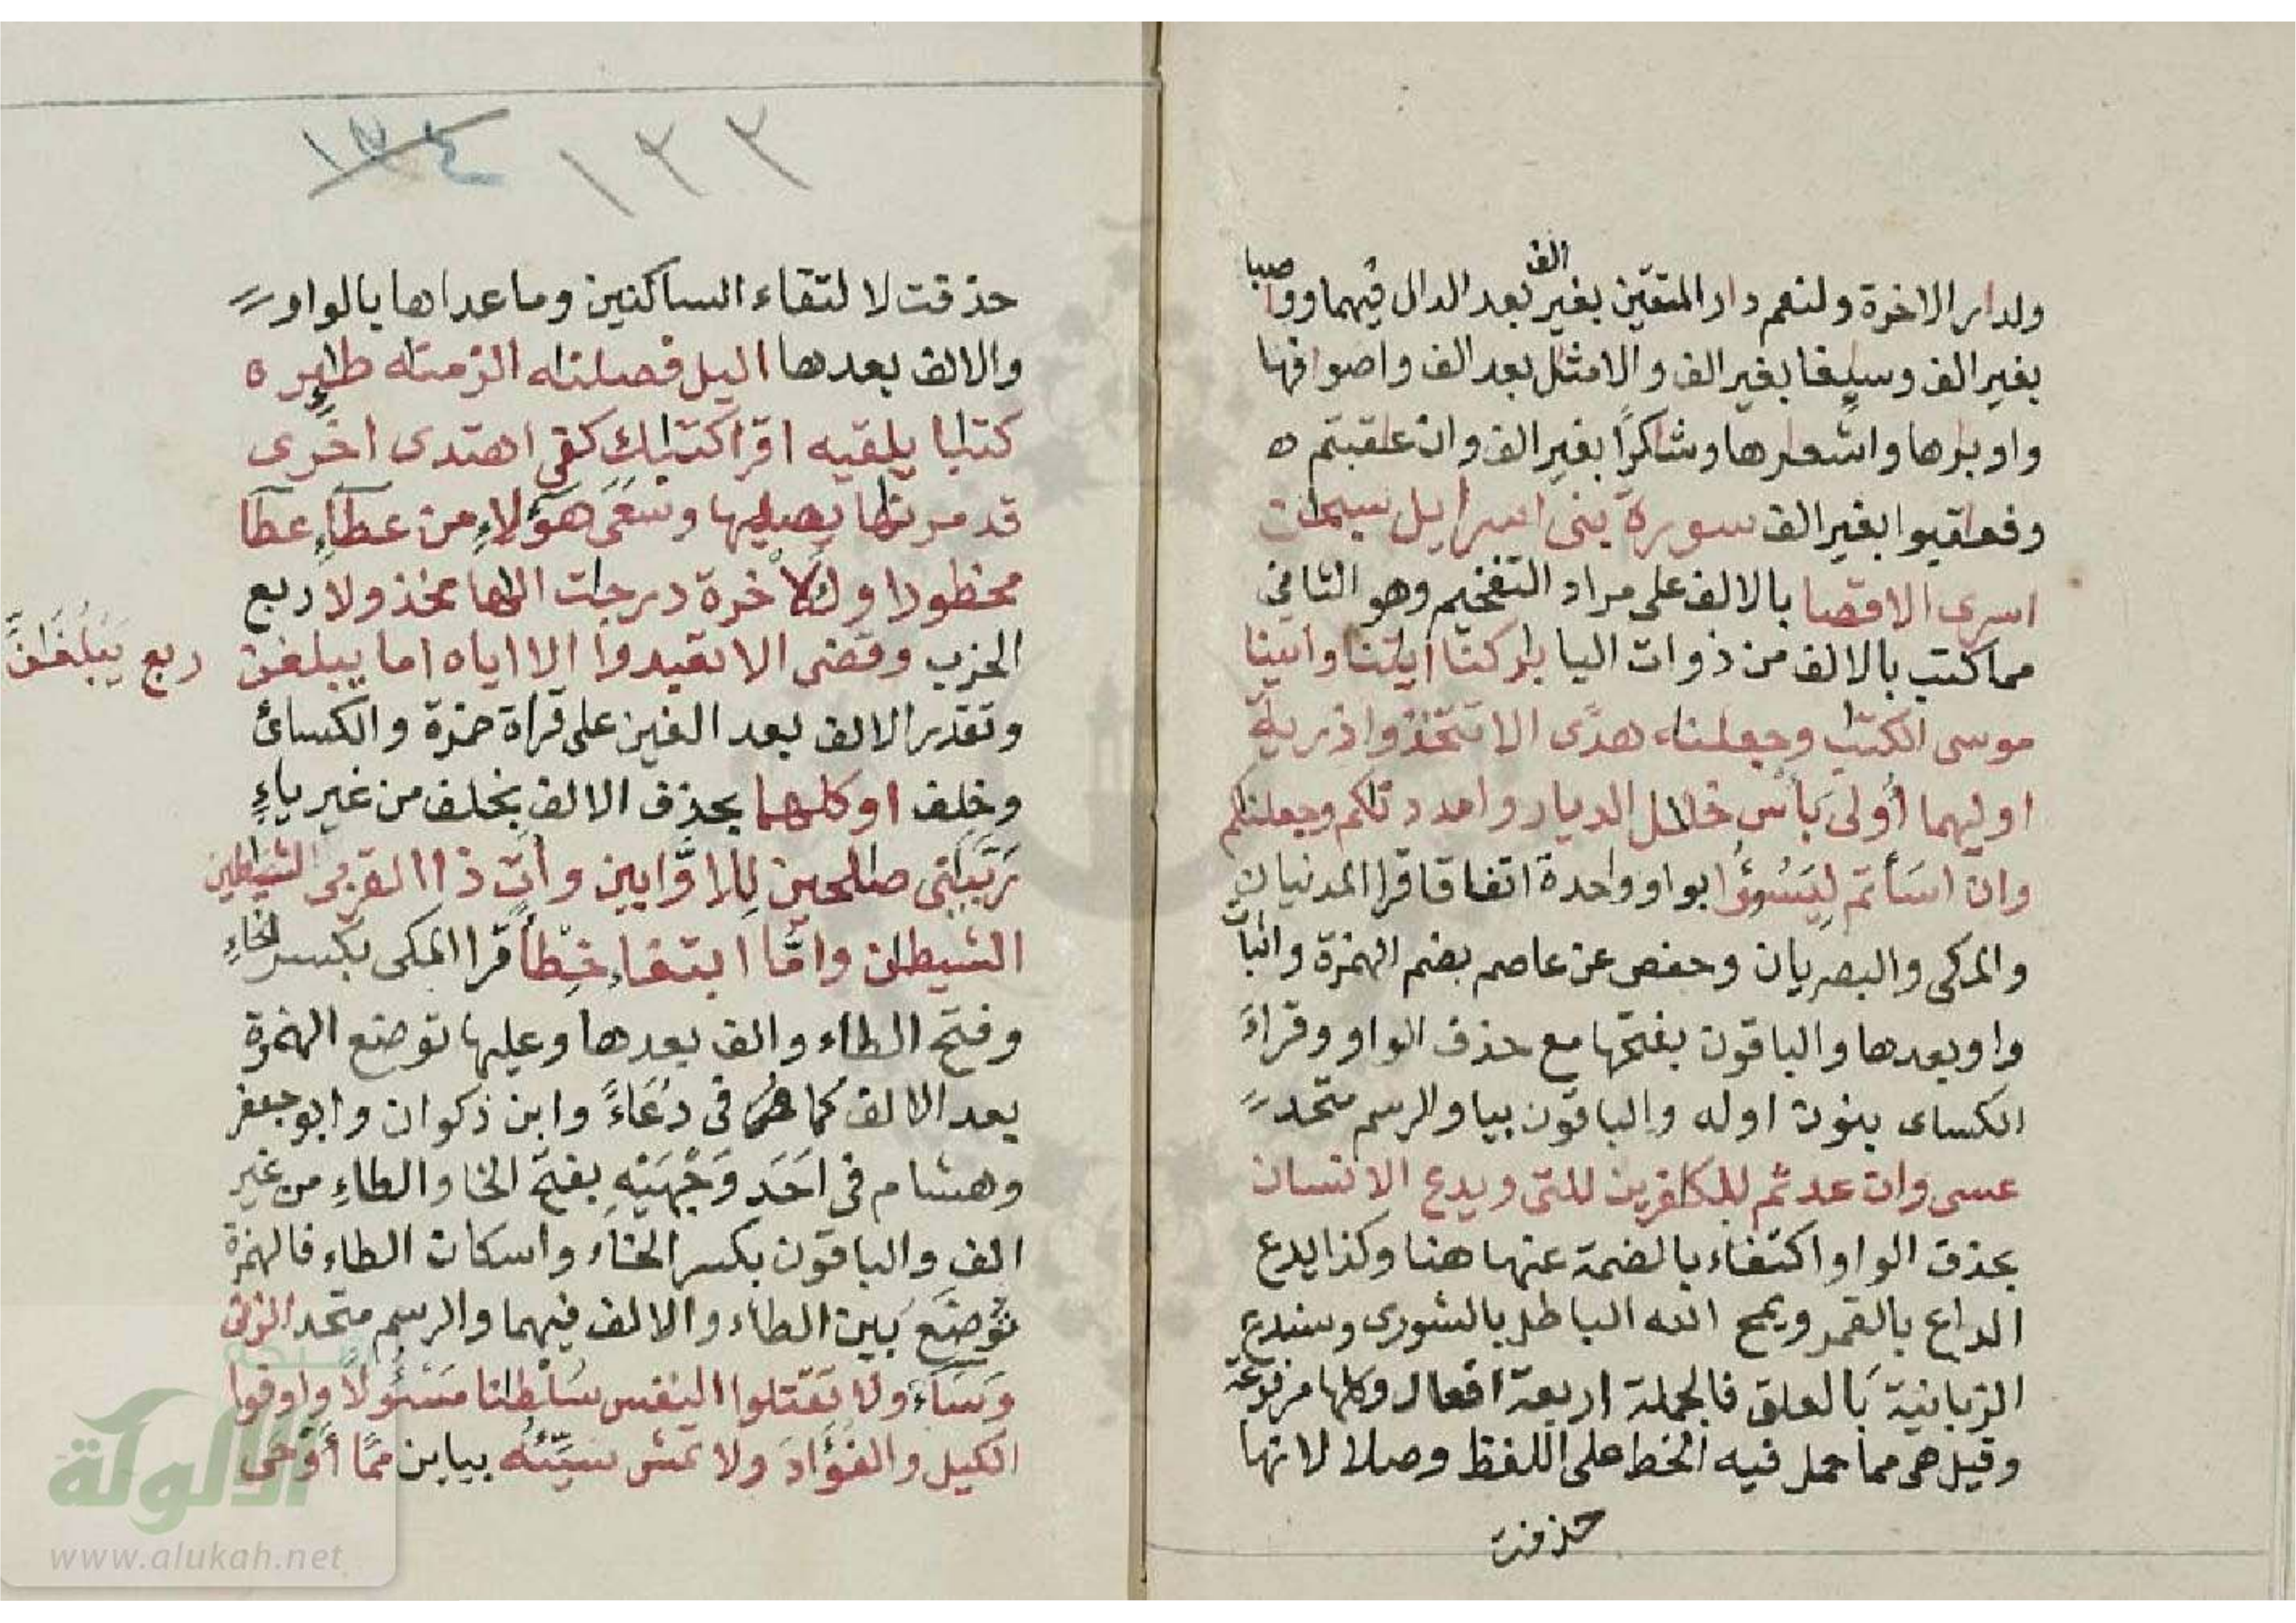 ولدار الاخرة ولنعم دار المتقين بغير الف بعد الدال فيهما وواصبا
بغير الف وسايغا بغير الف والامثل بعد الف واصوافها
واوبارها واشعارها وشاكرا بغير الف وان عاقبتم ه
وفعاقبوا بغير الف سورة بنى اسرايل سبحان
اسرى الاقصا بالالف على مراد التفخيم وهو الثانى
مما كتب بالالف من ذوات اليا باركنا ايتنا واتينا
موسى الكتب وجعلناه هدى الا تتخذوا ذرية
اوليهما أولى بأس خلل الديار وامددناكم وجعلناكم
وان اسأتم ليسؤا بواو واحدة اتفاقا قرا المدنيان
والمكى والبصريان وحفص عن عاصم بضم الهمزة واثبات
واو بعدها والباقون بفتحها مع حذف الواو وقراءَ
الكساى بنون اوله والباقون بيا والرسم متحد
عسى وان عدتم للكافرين للتى ويدع الانسان
بحذف الواو اكتفاء بالضمة عنها هنا وكذا يدع
الداع بالقمر ويمح الله الباطل بالشورى وسندع
الزبانية بالعلق فالجملة اربعة افعال وكلها مرفوعة
وقيل هى مما حمل فيه الخط على اللفظ وصلا لانها
حذفت
١٣٣ ١٣٤
حذفت لالتقاء الساكنين وما عداها بالواو
والالف بعدها اليل فصلناه الزمناه طايره ه
كتابا يلقيه اقرا كتابك كفى اهتدى اخرى
قد مرناها يصليها وسعى هؤلاء من عطاء عطا
محظورا وللاخرة درجات الها مخذولا ربع
الحزب وقضى الا تعبدوا الا اياه اما يبلغن ربع يَبْلُغَانِّ
وتقدير الالف بعد الغين على قراة حمزة والكسائ
وخلف او كلهما بحذف الالف بخلف من غير ياءٍ
رَبَّيَانى صالحين للاوَّابين وآت ذا القربى الشياطين
الشيطان وامّا ابتغاء خِطْأً قرا المكى بكسر الخاءِ
وفتح الطاء والف بعدها وعليها توضع الهمزة
بعد الالف كما هى فى دُعَاءً وابن ذكوان وابو جعفر
وهشام فى احَد وَجْهَيْهِ بفتح الخا والطاءِ من غير
الف والباقون بكسر الخاء واسكان الطاء فالهمزة
تُوضَع بين الطاء والالف فيهما والرسم متحد الزنى
وَسَاءَ ولا تقتلوا النفس سُلْطانا مَسْئُولاً واوفوا
الكيل والفُؤَادَ ولا تمش سَيِّئُهُ بيايين مِمَّا أَوْحَى
الألوكة
www.alukah.net